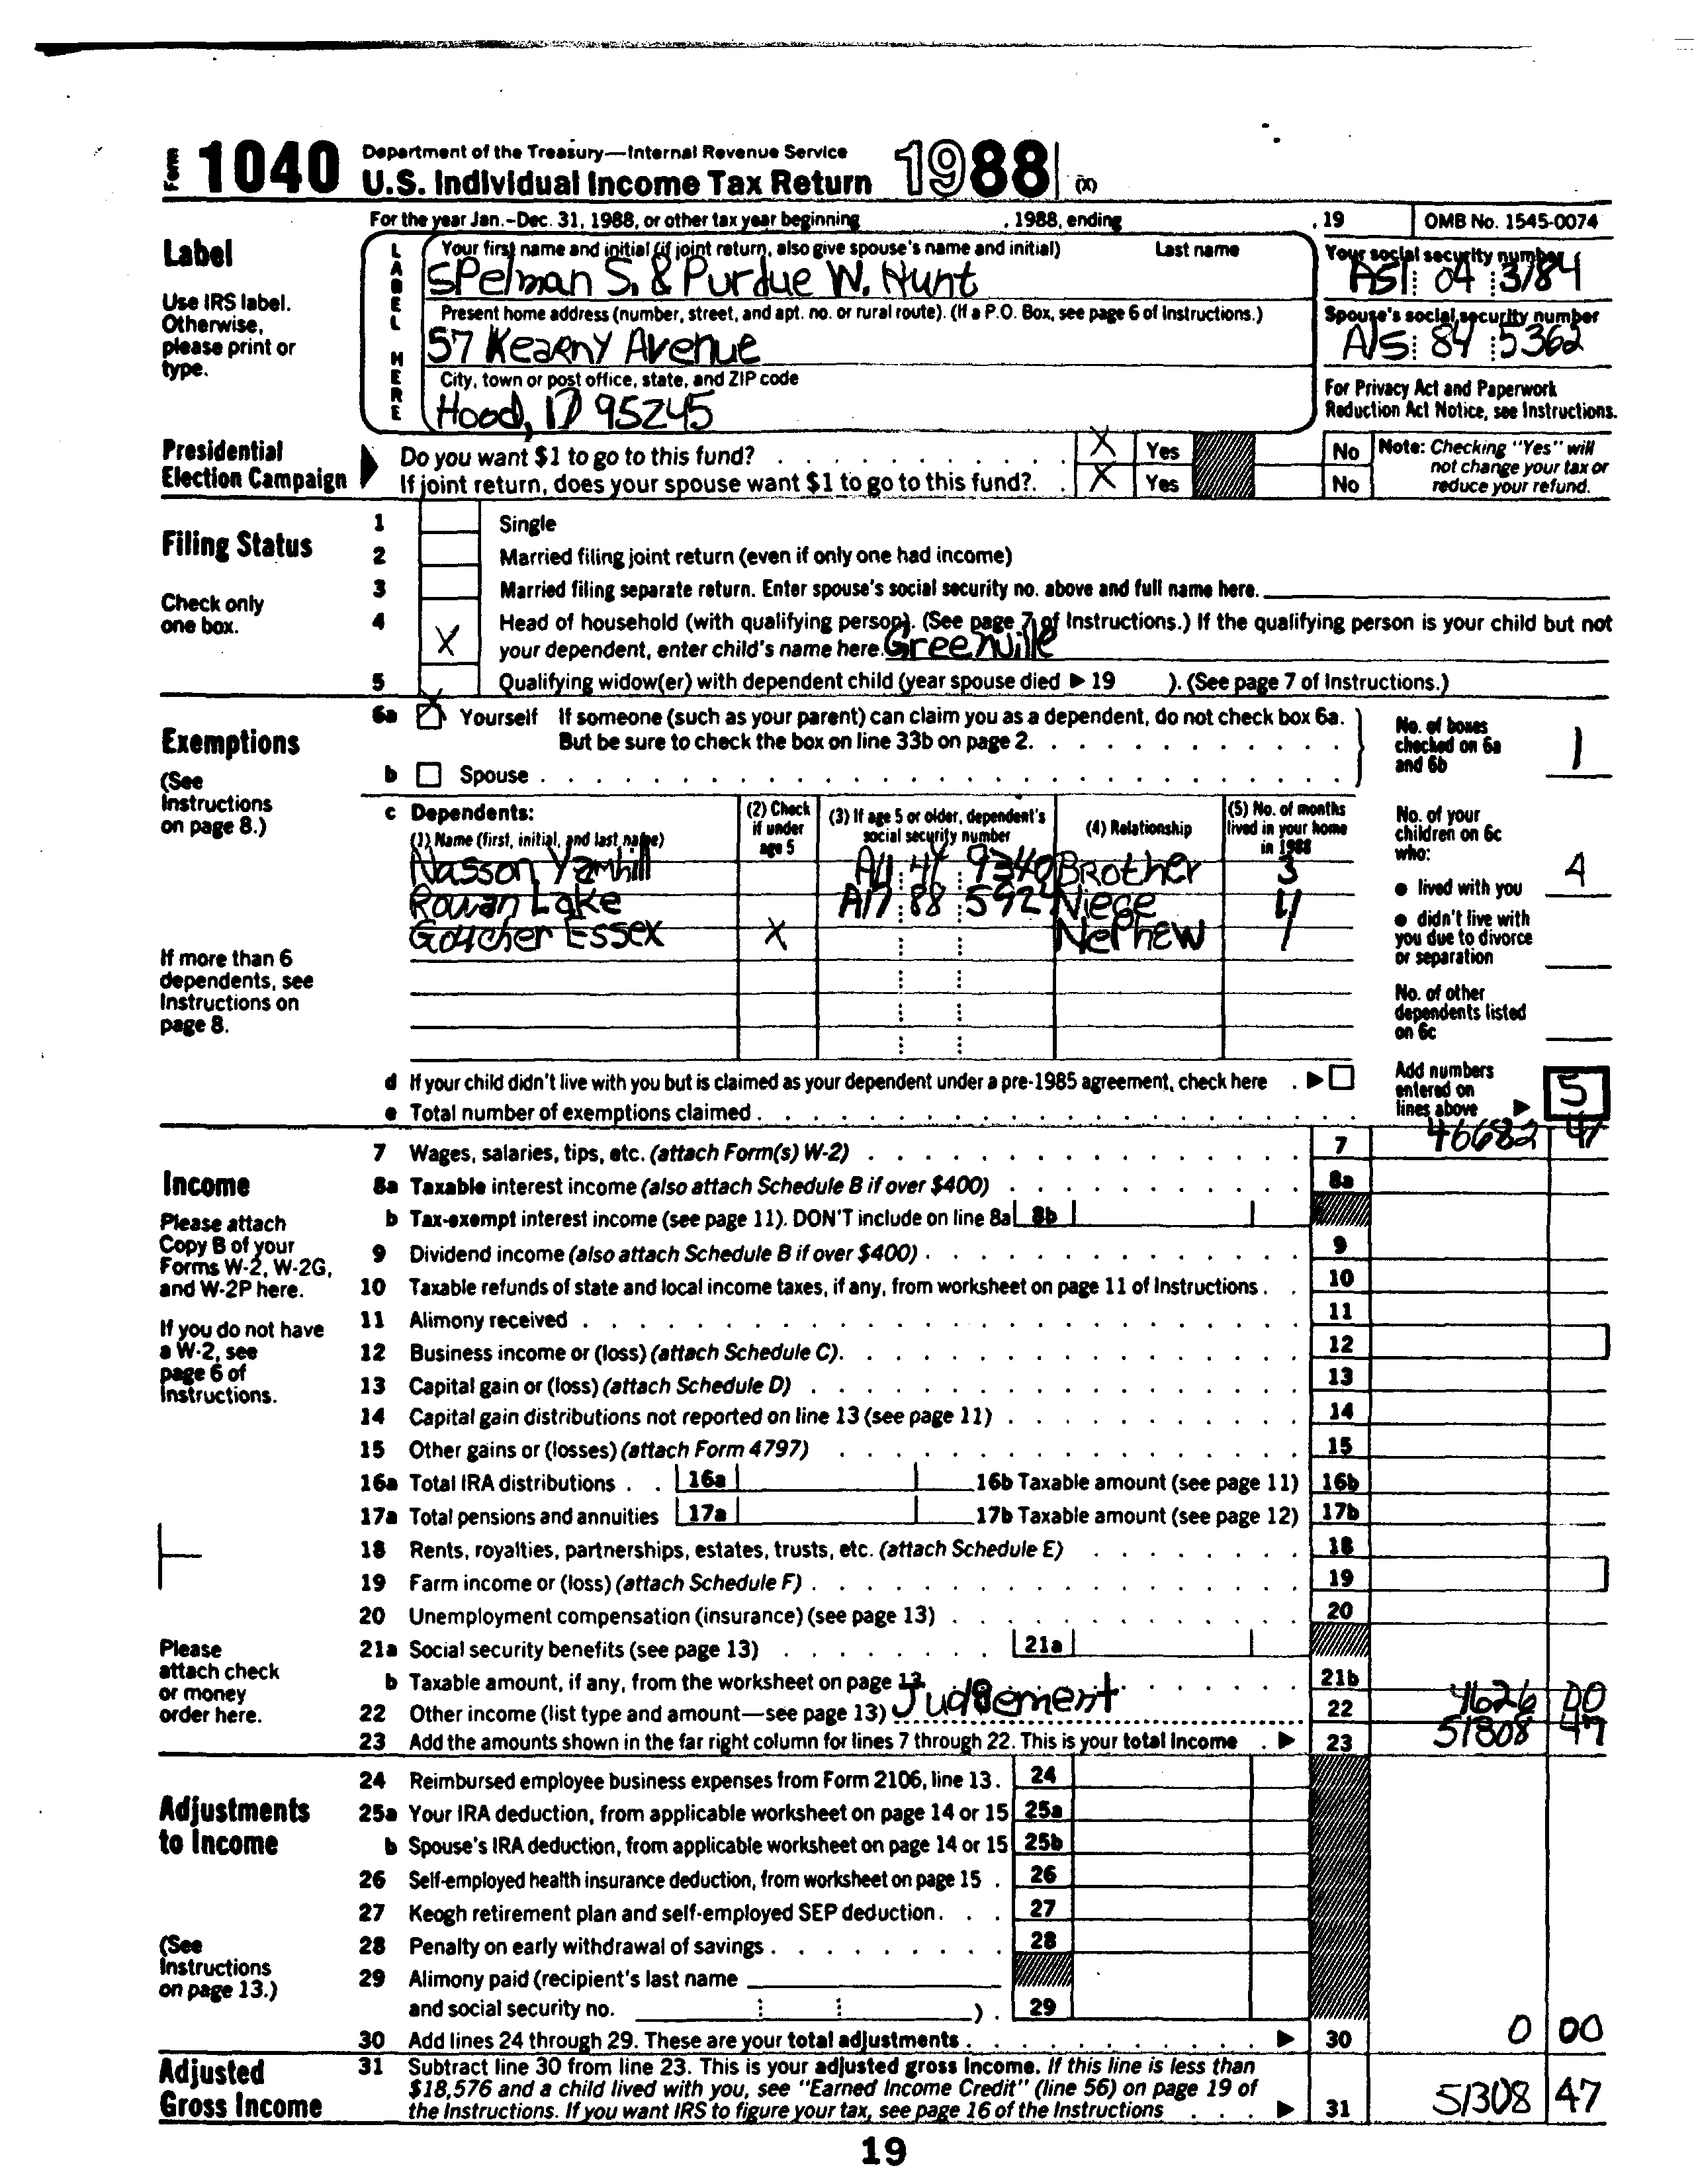 Form 1040 Department of the Treasury—Internal Revenue Service
U.S. Individual Income Tax Return 1988 (X)
For the year Jan.-Dec. 31, 1988, or other tax year beginning , 1988, ending , 19 OMB No. 1545-0074
Label
Use IRS label.
Otherwise,
please print or
type.
LABEL HERE
Your first name and initial (if joint return, also give spouse's name and initial) Last name
Spelman S. & Purdue W. Hunt
Present home address (number, street, and apt. no. or rural route). (If a P.O. Box, see page 6 of Instructions.)
57 Kearny Avenue
City, town or post office, state, and ZIP code
Hood, ID 95245
Your social security number
04 3184
Spouse's social security number
84 5362
For Privacy Act and Paperwork
Reduction Act Notice, see Instructions.
Presidential
Election Campaign
Do you want $1 to go to this fund? X Yes No
If joint return, does your spouse want $1 to go to this fund? X Yes No
Note: Checking "Yes" will
not change your tax or
reduce your refund.
Filing Status
Check only
one box.
1 Single
2 Married filing joint return (even if only one had income)
3 Married filing separate return. Enter spouse's social security no. above and full name here.
4 X Head of household (with qualifying person). (See page 7 of Instructions.) If the qualifying person is your child but not
your dependent, enter child's name here. Greenville
5 Qualifying widow(er) with dependent child (year spouse died ▶ 19 ). (See page 7 of Instructions.)
Exemptions
(See
Instructions
on page 8.)
6a X Yourself If someone (such as your parent) can claim you as a dependent, do not check box 6a.
But be sure to check the box on line 33b on page 2.
b Spouse
No. of boxes
checked on 6a
and 6b 1
c Dependents:
(1) Name (first, initial, and last name)
(2) Check
if under
age 5
(3) If age 5 or older, dependent's
social security number
(4) Relationship
(5) No. of months
lived in your home
in 1988
Nasson Yamhill 9340 Brother 3
Rowan Lake 88 Niece 4
Goucher Essex X Nephew 1
If more than 6
dependents, see
Instructions on
page 8.
No. of your
children on 6c
who:
● lived with you 4
● didn't live with
you due to divorce
or separation
No. of other
dependents listed
on 6c
d If your child didn't live with you but is claimed as your dependent under a pre-1985 agreement, check here ▶
e Total number of exemptions claimed
Add numbers
entered on
lines above ▶ 5
Income
Please attach
Copy B of your
Forms W-2, W-2G,
and W-2P here.
If you do not have
a W-2, see
page 6 of
Instructions.
Please
attach check
or money
order here.
7 Wages, salaries, tips, etc. (attach Form(s) W-2) 7 46682 47
8a Taxable interest income (also attach Schedule B if over $400) 8a
b Tax-exempt interest income (see page 11). DON'T include on line 8a 8b
9 Dividend income (also attach Schedule B if over $400) 9
10 Taxable refunds of state and local income taxes, if any, from worksheet on page 11 of Instructions 10
11 Alimony received 11
12 Business income or (loss) (attach Schedule C) 12
13 Capital gain or (loss) (attach Schedule D) 13
14 Capital gain distributions not reported on line 13 (see page 11) 14
15 Other gains or (losses) (attach Form 4797) 15
16a Total IRA distributions 16a 16b Taxable amount (see page 11) 16b
17a Total pensions and annuities 17a 17b Taxable amount (see page 12) 17b
18 Rents, royalties, partnerships, estates, trusts, etc. (attach Schedule E) 18
19 Farm income or (loss) (attach Schedule F) 19
20 Unemployment compensation (insurance) (see page 13) 20
21a Social security benefits (see page 13) 21a
b Taxable amount, if any, from the worksheet on page 13 21b
22 Other income (list type and amount—see page 13) Judgement 22 4626 00
23 Add the amounts shown in the far right column for lines 7 through 22. This is your total income ▶ 23 51308 47
Adjustments
to Income
(See
Instructions
on page 13.)
24 Reimbursed employee business expenses from Form 2106, line 13. 24
25a Your IRA deduction, from applicable worksheet on page 14 or 15 25a
b Spouse's IRA deduction, from applicable worksheet on page 14 or 15 25b
26 Self-employed health insurance deduction, from worksheet on page 15 26
27 Keogh retirement plan and self-employed SEP deduction 27
28 Penalty on early withdrawal of savings 28
29 Alimony paid (recipient's last name
and social security no. ) 29
30 Add lines 24 through 29. These are your total adjustments ▶ 30 0 00
Adjusted
Gross Income
31 Subtract line 30 from line 23. This is your adjusted gross income. If this line is less than
$18,576 and a child lived with you, see "Earned Income Credit" (line 56) on page 19 of
the Instructions. If you want IRS to figure your tax, see page 16 of the Instructions ▶ 31 51308 47
19